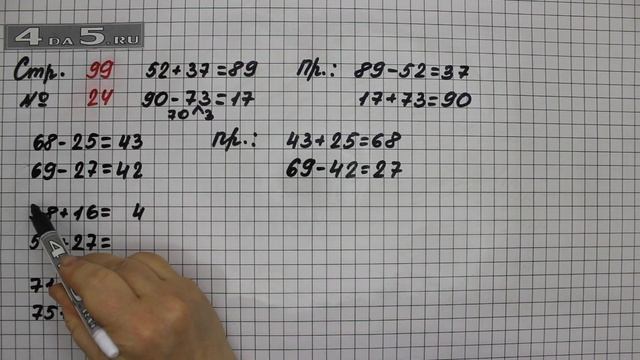 4DA5.RU
Стр. 99 52+37=89 Пр.: 89-52=37
№ 24 90-73=17 17+73=90
70 3
68-25=43 Пр.: 43+25=68
69-27=42 69-42=27
8+16= 4
27=
75